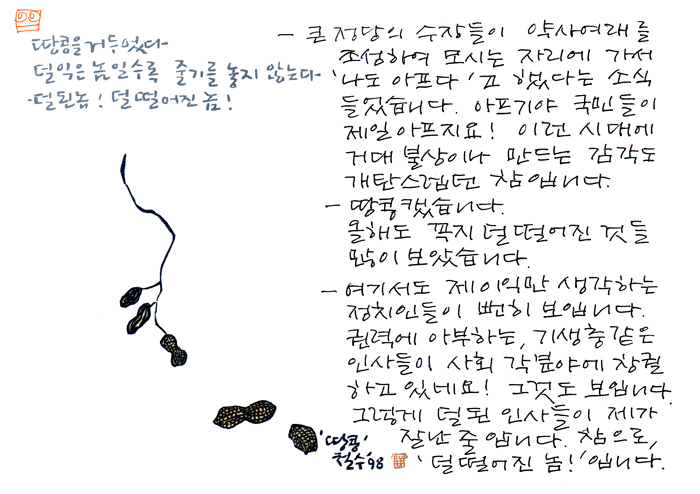 땅콩을 거두었다-
덜익은 놈일수록 줄기를 놓지 않는다-
덜된놈! 덜 떨어진 놈!
- 큰 정당의 수장들이 약사여래를
조성하여 모시는 자리에 가서
'나도 아프다'고 했다는 소식
들었습니다. 아프기야 국민들이
제일 아프지요! 이런 시대에
거대 불상이나 만드는 감각도
개탄스럽던 참입니다.
- 땅콩 캤습니다.
올해도 꼭지 덜 떨어진 것들
많이 보았습니다.
- 여기서도 제 이익만 생각하는
정치인들이 뻔히 보입니다.
권력에 아부하는, 기생충같은
인사들이 사회 각분야에 창궐
하고 있네요! 그것도 보입니다.
그렇게 덜 된 인사들이 제가
잘난 줄 압니다. 참으로,
'덜 떨어진 놈!' 입니다.
'땅콩'
철수 '98